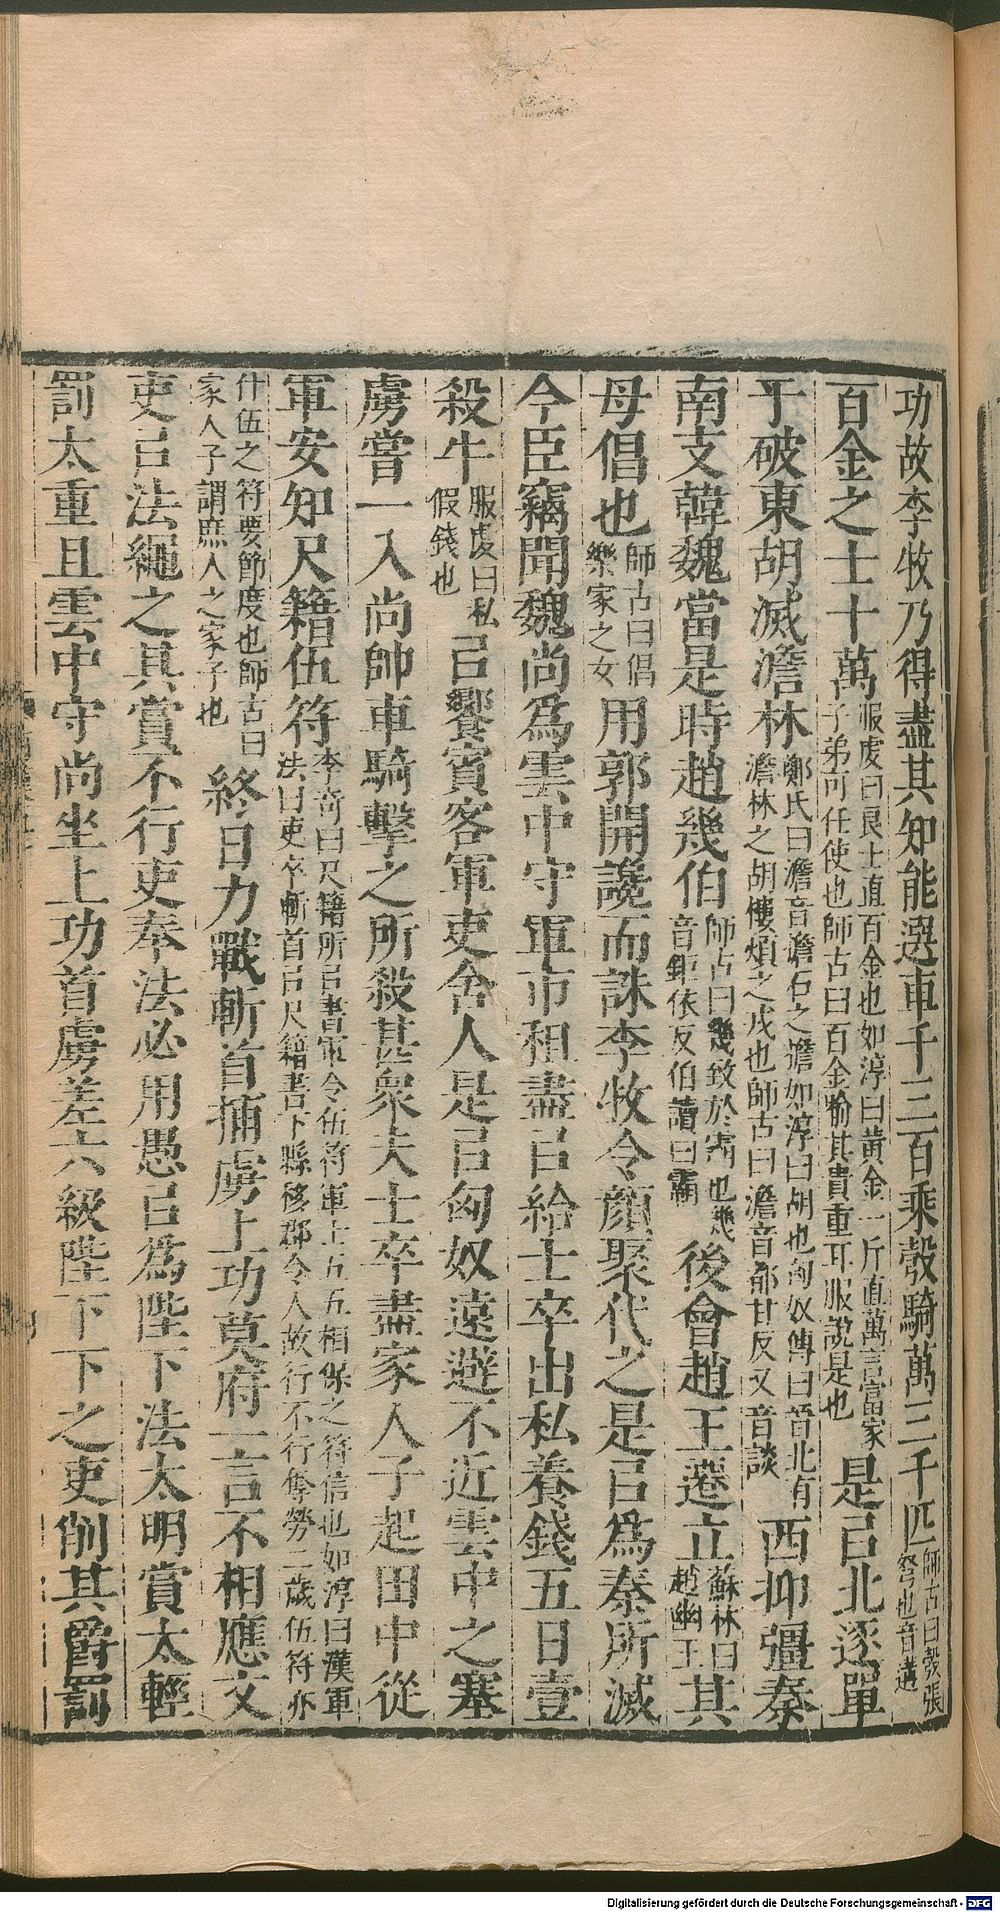 功故李牧乃得盡其知能選車千三百乘彀騎萬三千匹師古曰彀張弩也音遘
百金之士十萬服虔曰良士直百金也如淳曰黃金一斤直萬言富家子弟可任使也師古曰百金喻其貴重耳服說是也是㠯北逐單
于破東胡滅澹林鄭氏曰澹音澹石之澹如淳曰胡也匈奴傳曰晉北有澹林之胡樓煩之戎也師古曰澹音都甘反又音談西抑彊秦
南支韓魏當是時趙幾伯師古曰幾致於霸也幾音鉅依反伯讀曰霸後會趙王遷立蘇林曰趙幽王其
母倡也師古曰倡樂家之女用郭開讒而誅李牧令顏聚代之是㠯爲秦所滅
今臣竊聞魏尚爲雲中守軍市租盡㠯給士卒出私養錢五日壹
殺牛服虔曰私假錢也㠯饗賓客軍吏舍人是㠯匈奴遠避不近雲中之塞
虜嘗一入尚帥車騎擊之所殺甚衆夫士卒盡家人子起田中從
軍安知尺籍伍符李奇曰尺籍所㠯書軍令伍符軍士五五相保之符信也如淳曰漢軍法曰吏卒斬首㠯尺籍書下縣移郡令人故行不行奪勞二歲伍符亦
什伍之符要節度也師古曰家人子謂庶人之家子也終日力戰斬首捕虜上功莫府一言不相應文
吏㠯法繩之其賞不行吏奉法必用愚㠯爲陛下法太明賞太輕
罰太重且雲中守尚坐上功首虜差六級陛下下之吏削其爵罰
Digitalisierung gefördert durch die Deutsche Forschungsgemeinschaft - DFG